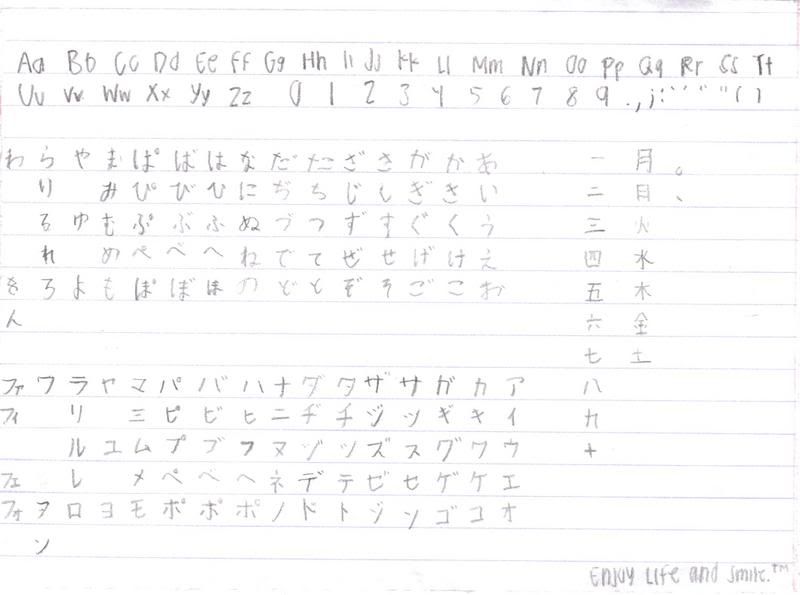 Aa Bb Cc Dd Ee Ff Gg Hh Ii Jj Kk Ll Mm Nn Oo Pp Qq Rr Ss Tt
Uu Vv Ww Xx Yy Zz 0 1 2 3 4 5 6 7 8 9 . , ; : ' ' " " ( )
わ ら や ま ぱ ば は な だ た ざ さ が か あ 一 月 。
り み ぴ び ひ に ぢ ち じ し ぎ き い 二 日 、
る ゆ む ぷ ぶ ふ ぬ づ つ ず す ぐ く う 三 火
れ め ぺ べ へ ね で て ぜ せ げ け え 四 水
を ろ よ も ぽ ぼ ほ の ど と ぞ そ ご こ お 五 木
ん 六 金
七 土
ファ ワ ラ ヤ マ パ バ ハ ナ ダ タ ザ サ ガ カ ア 八
フィ リ ミ ピ ビ ヒ ニ ヂ チ ジ シ ギ キ イ 九
ル ユ ム プ ブ フ ヌ ヅ ツ ズ ス グ ク ウ 十
フェ レ メ ペ ベ ヘ ネ デ テ ゼ セ ゲ ケ エ
フォ ヲ ロ ヨ モ ポ ポ ポ ノ ド ト ゾ ソ ゴ コ オ
ン
Enjoy Life and Smile.™